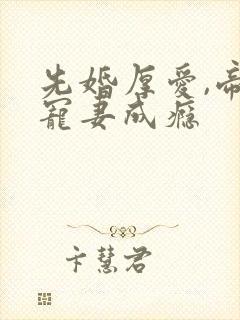 先婚厚爱,帝
宠妻成瘾
卞慧君